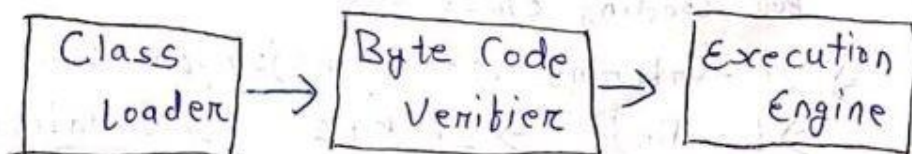 Class
Loader
Byte Code
Verifier
Execution
Engine